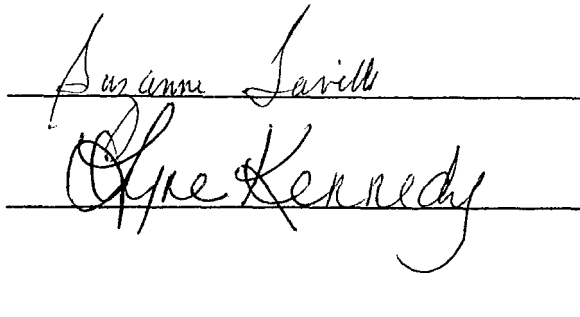 Suzanne Saville
Kennedy